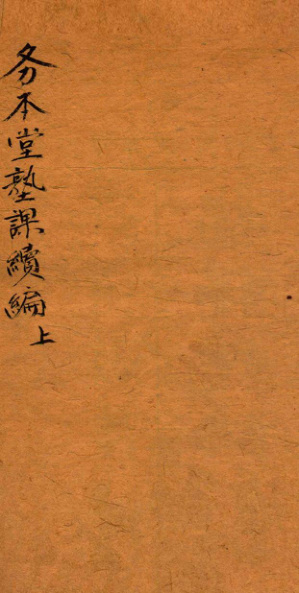 务本堂塾課續編上